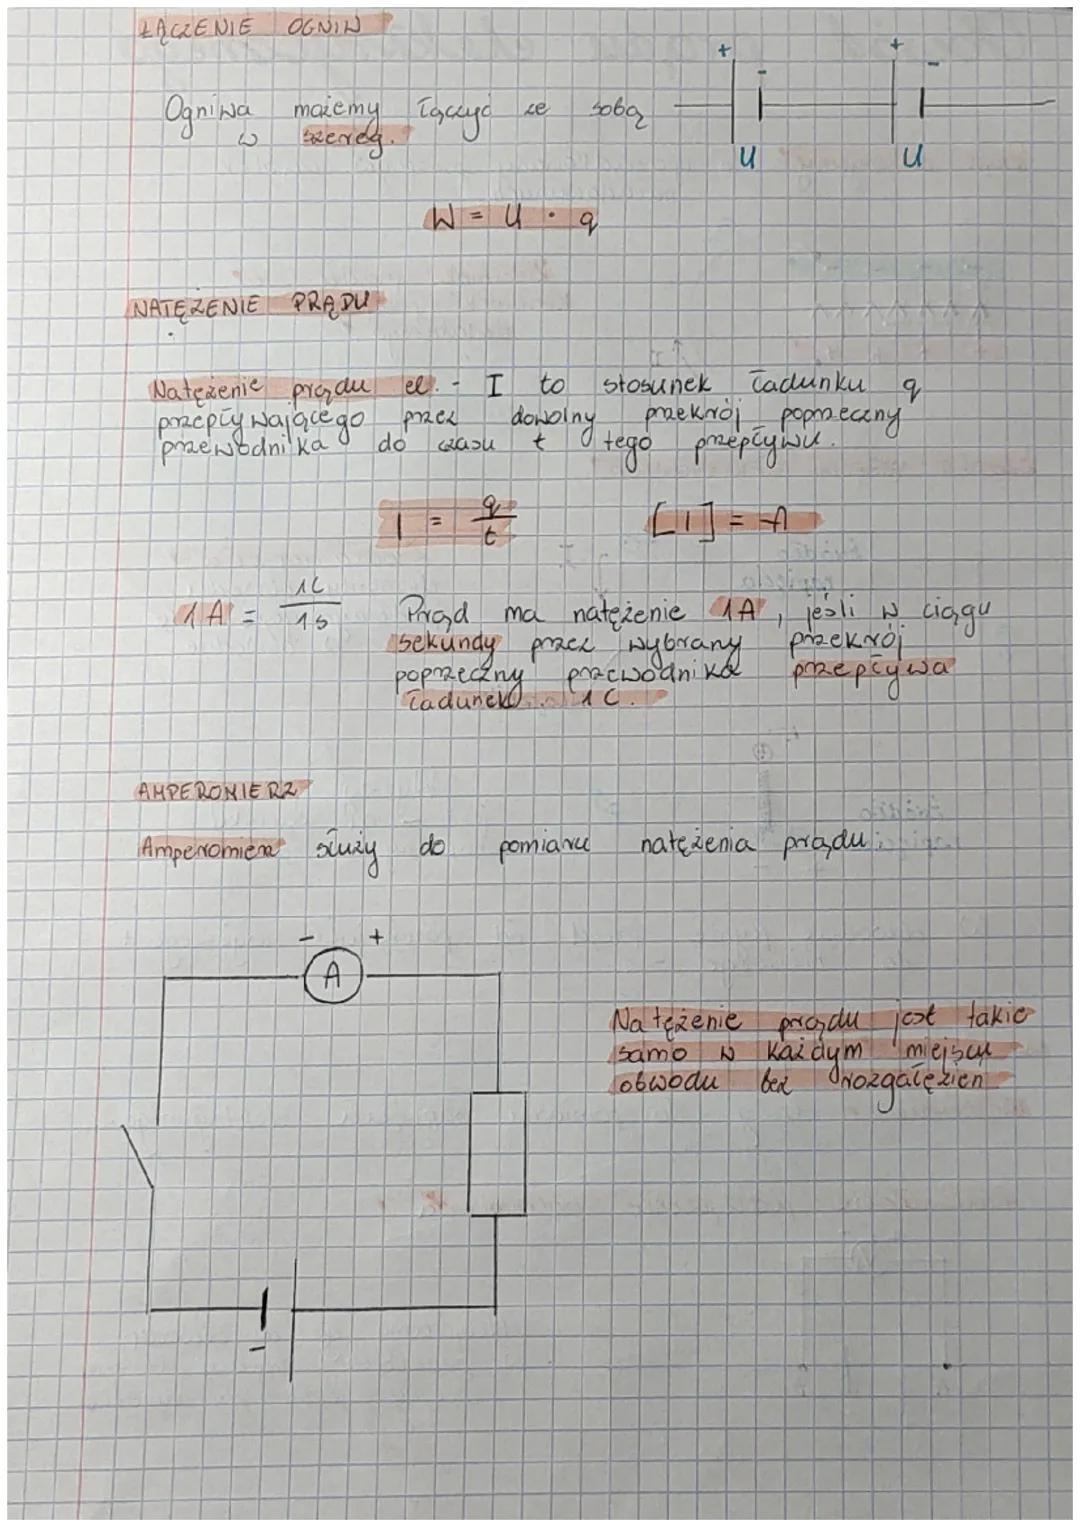 ŁĄCZENIE OGNIW
+ - + -
Ogniwa możemy łączyć ze sobą
w szereg.
U U
W = U · q
NATĘŻENIE PRĄDU
Natężenie prądu el. - I to stosunek ładunku q
przepływającego przez dowolny przekrój poprzeczny
przewodnika do czasu t tego przepływu.
I = q/t [I] = A
1A = 1C/1s Prąd ma natężenie 1A, jeśli w ciągu
sekundy przez wybrany przekrój
poprzeczny przewodnika przepływa
ładunek 1C.
AMPEROMIERZ
Amperomierz służy do pomiaru natężenia prądu
- +
A
Natężenie prądu jest takie
samo w każdym miejscu
obwodu bez rozgałęzień
-